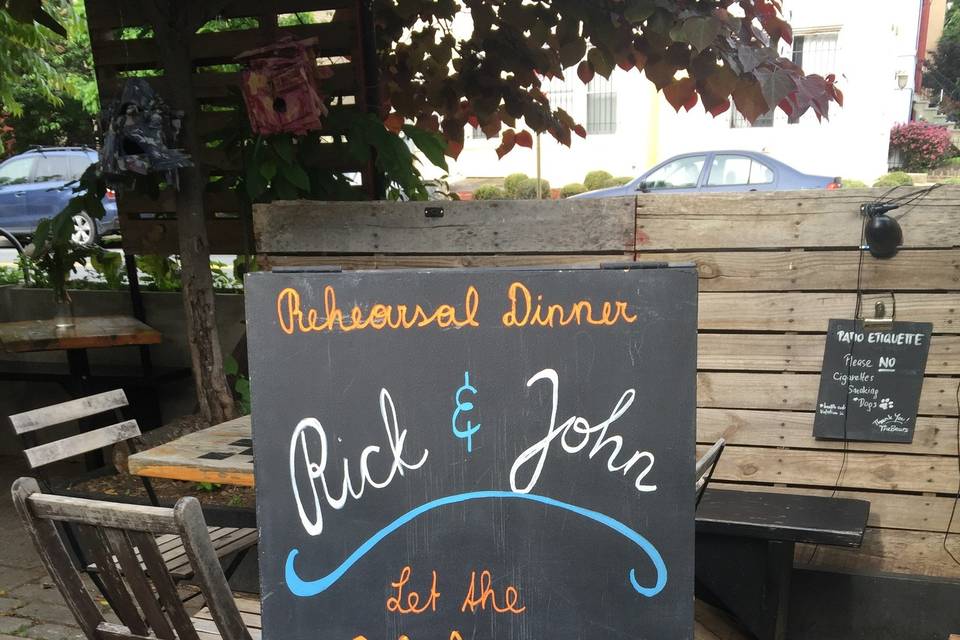 Rehearsal Dinner
Rick & John
Let the
PATIO ETIQUETTE
Please NO
Cigarettes
Smoking
*Dogs
Thank You!
The Bears